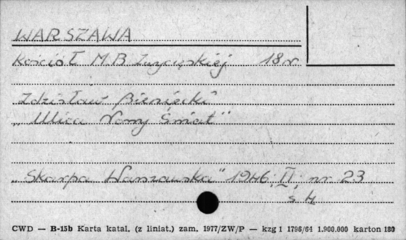 WARSZAWA
Kościół M.B. Zwycięskiej 18 w.
Zdzisław Bieniecki
„Ulica Nowy Świat"
„Skarpa Warszawska" 1946, II, nr 23
s. 4
CWD — B-15b Karta katal. (z liniat.) zam. 1977/ZW/P — kzg I 1796/64 1.900.000 karton 180